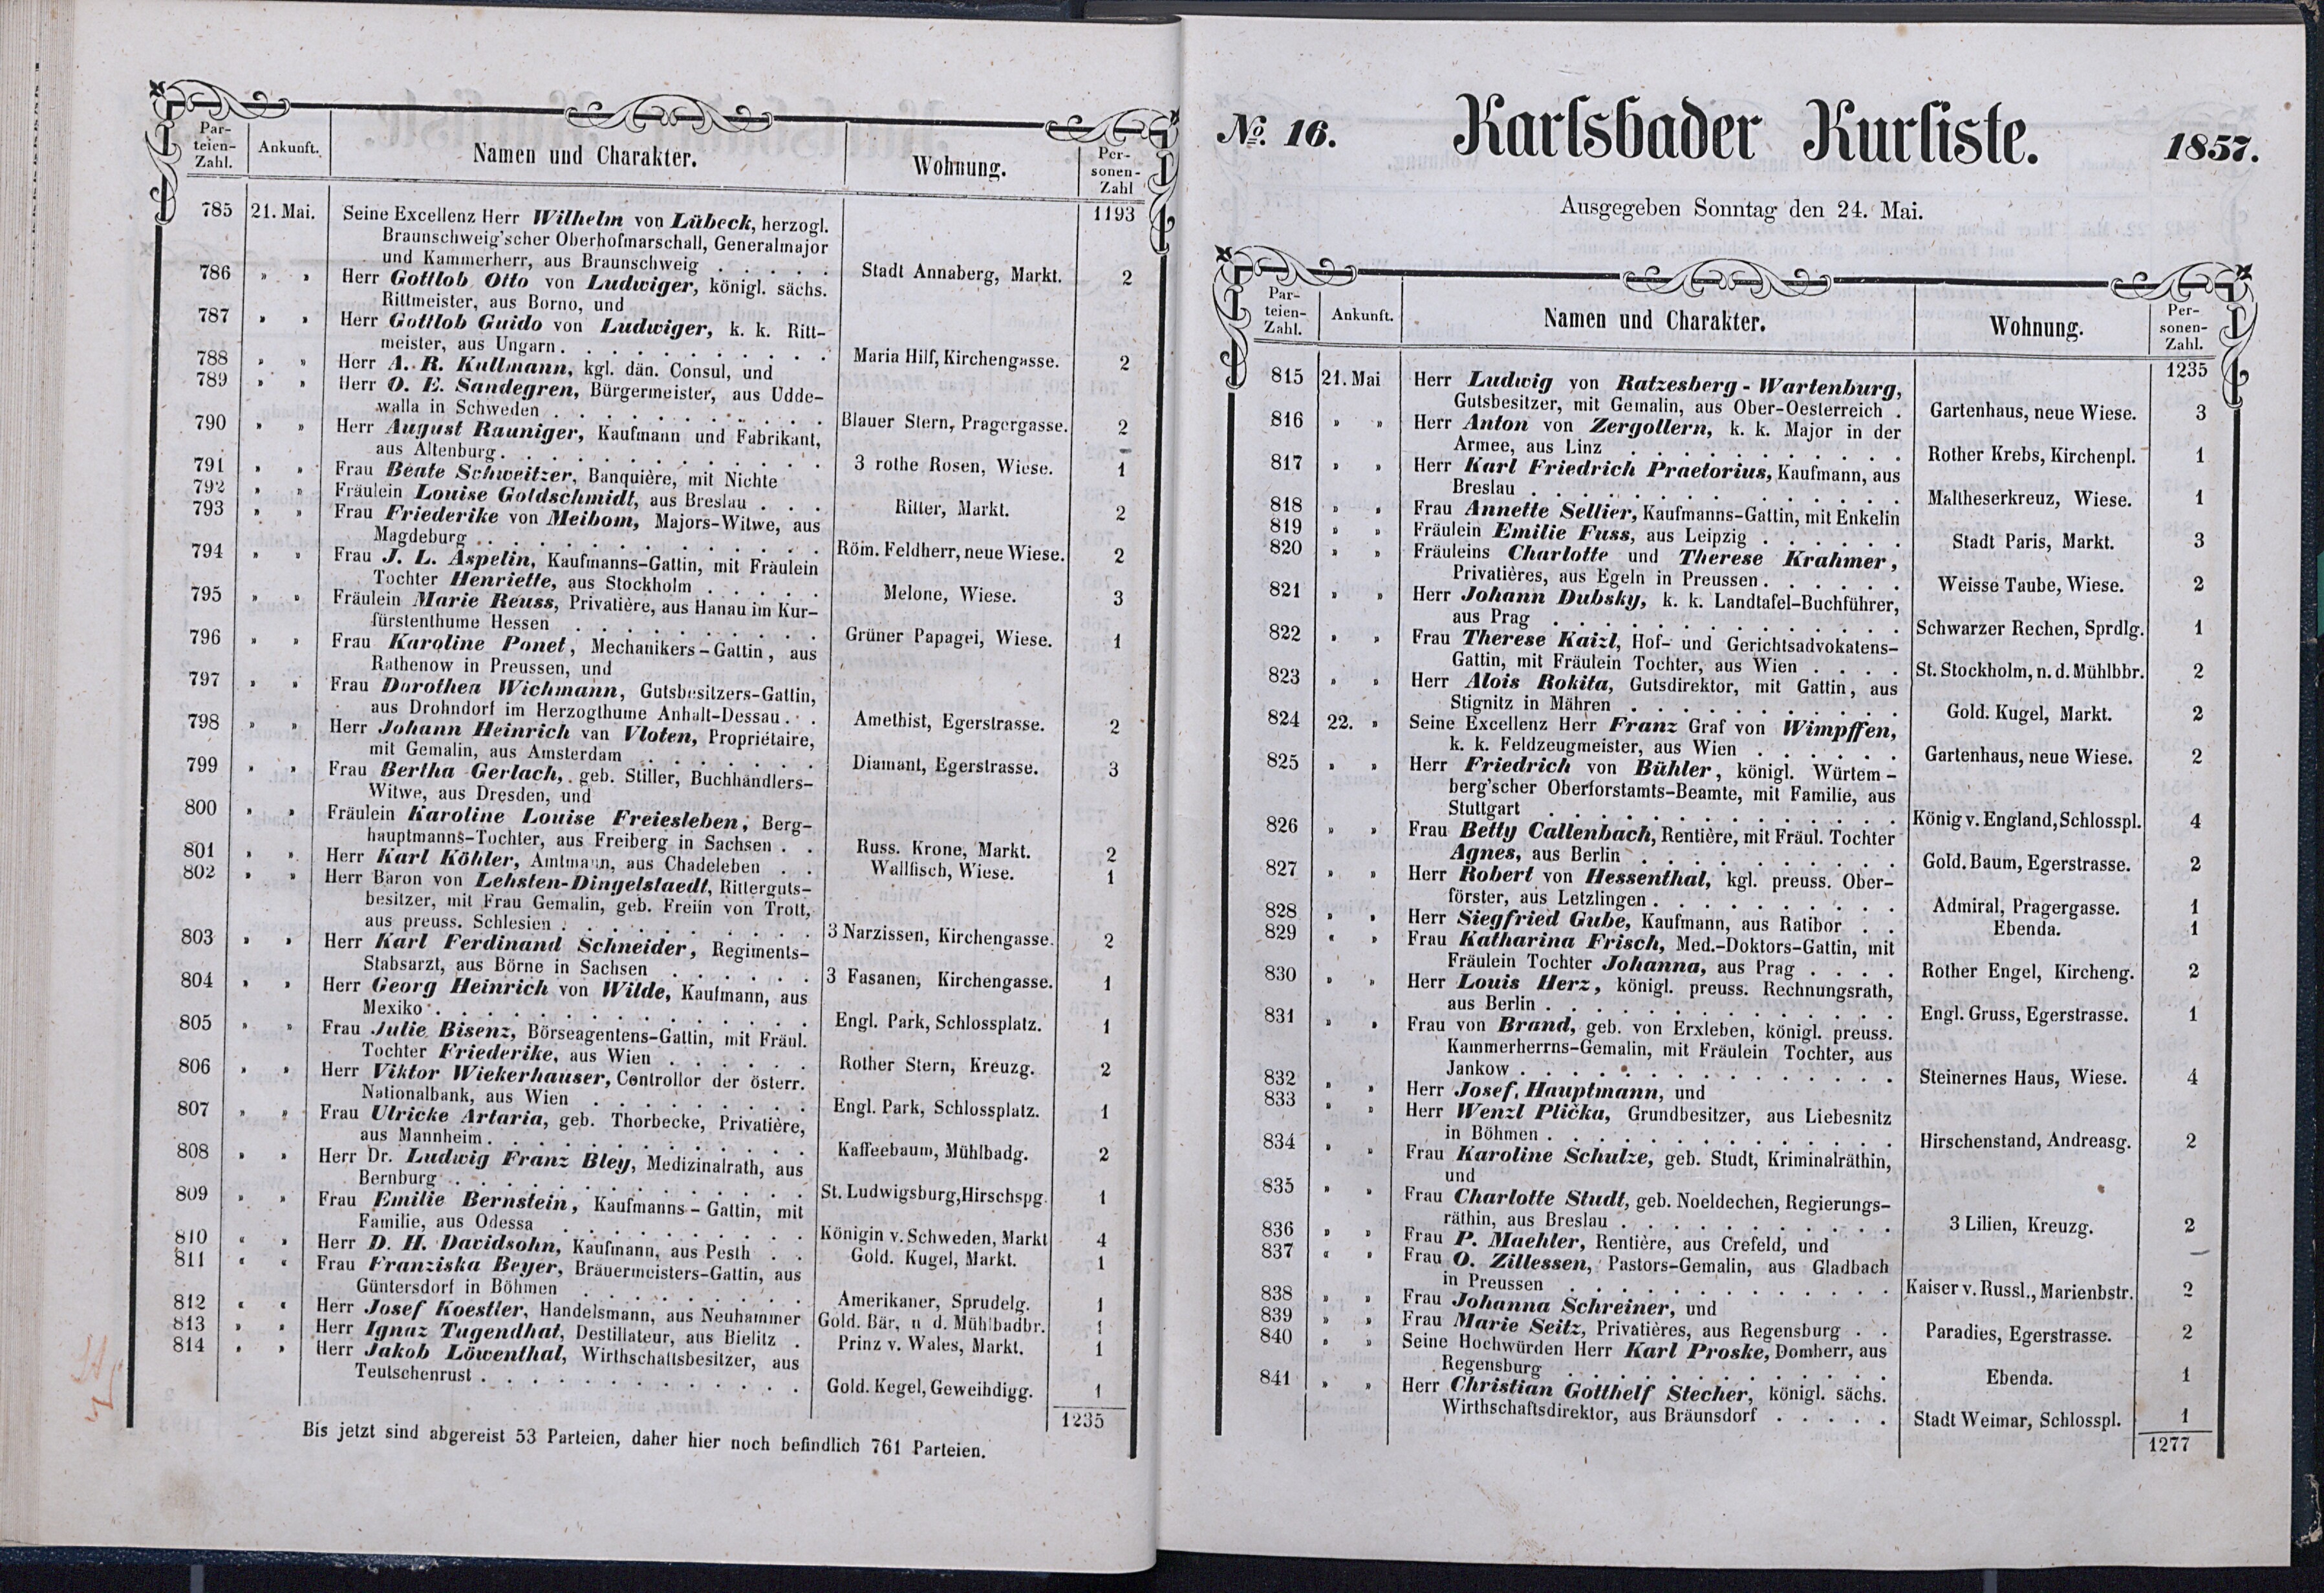 Par-
teien-
Zahl.
Ankunft.
Namen und Charakter.
Wohnung.
Per-
sonen-
Zahl
1193
785 21. Mai. Seine Excellenz Herr Wilhelm von Lübeck, herzogl.
Braunschweig'scher Oberhofmarschall, Generalmajor
und Kammerherr, aus Braunschweig . . . . . Stadt Annaberg, Markt. 2
786 „ „ Herr Gottlob Otto von Ludwiger, königl. sächs.
Rittmeister, aus Borno, und
787 „ „ Herr Gottlob Guido von Ludwiger, k. k. Ritt-
meister, aus Ungarn . . . . . Maria Hilf, Kirchengasse. 2
788 „ „ Herr A. R. Kullmann, kgl. dän. Consul, und
789 „ „ Herr O. E. Sandegren, Bürgermeister, aus Udde-
walla in Schweden . . . . . Blauer Stern, Pragergasse. 2
790 „ „ Herr August Rauniger, Kaufmann und Fabrikant,
aus Altenburg . . . . . 3 rothe Rosen, Wiese. 1
791 „ „ Frau Beate Schweitzer, Banquière, mit Nichte
792 „ „ Fräulein Louise Goldschmidt, aus Breslau . . . Ritter, Markt. 2
793 „ „ Frau Friederike von Meibom, Majors-Witwe, aus
Magdeburg . . . . . Röm. Feldherr, neue Wiese. 2
794 „ „ Frau J. L. Aspelin, Kaufmanns-Gattin, mit Fräulein
Tochter Henriette, aus Stockholm . . . . . Melone, Wiese. 3
795 „ „ Fräulein Marie Reuss, Privatière, aus Hanau im Kur-
fürstenthume Hessen . . . . . Grüner Papagei, Wiese. 1
796 „ „ Frau Karoline Ponet, Mechanikers-Gattin, aus
Rathenow in Preussen, und
797 „ „ Frau Dorothea Wichmann, Gutsbesitzers-Gattin,
aus Drohndorf im Herzogthume Anhalt-Dessau . . Amethist, Egerstrasse. 2
798 „ „ Herr Johann Heinrich van Vloten, Propriétaire,
mit Gemalin, aus Amsterdam . . . . . Diamant, Egerstrasse. 3
799 „ „ Frau Bertha Gerlach, geb. Stiller, Buchhändlers-
Witwe, aus Dresden, und
800 „ „ Fräulein Karoline Louise Freiesleben, Berg-
hauptmanns-Tochter, aus Freiberg in Sachsen . . Russ. Krone, Markt. 2
801 „ „ Herr Karl Köhler, Amtmann, aus Chadeleben . . Wallfisch, Wiese. 1
802 „ „ Herr Baron von Lehsten-Dingelstaedt, Ritterguts-
besitzer, mit Frau Gemalin, geb. Freiin von Trott,
aus preuss. Schlesien . . . . . 3 Narzissen, Kirchengasse. 2
803 „ „ Herr Karl Ferdinand Schneider, Regiments-
Stabsarzt, aus Börne in Sachsen . . . . . 3 Fasanen, Kirchengasse. 1
804 „ „ Herr Georg Heinrich von Wilde, Kaufmann, aus
Mexiko . . . . . Engl. Park, Schlossplatz. 1
805 „ „ Frau Julie Bisenz, Börseagentens-Gattin, mit Fräul.
Tochter Friederike, aus Wien . . . . . Rother Stern, Kreuzg. 2
806 „ „ Herr Viktor Wiekerhauser, Controllor der österr.
Nationalbank, aus Wien . . . . . Engl. Park, Schlossplatz. 1
807 „ „ Frau Ulricke Artaria, geb. Thorbecke, Privatière,
aus Mannheim . . . . . Kaffeebaum, Mühlbadg. 2
808 „ „ Herr Dr. Ludwig Franz Bley, Medizinalrath, aus
Bernburg . . . . . St. Ludwigsburg, Hirschspg. 1
809 „ „ Frau Emilie Bernstein, Kaufmanns-Gattin, mit
Familie, aus Odessa . . . . . Königin v. Schweden, Markt 4
810 „ „ Herr D. H. Davidsohn, Kaufmann, aus Pesth . . Gold. Kugel, Markt. 1
811 „ „ Frau Franziska Beyer, Bräuermeisters-Gattin, aus
Güntersdorf in Böhmen . . . . . Amerikaner, Sprudelg. 1
812 „ „ Herr Josef Koestler, Handelsmann, aus Neuhammer Gold. Bär, n d. Mühlbadbr. 1
813 „ „ Herr Ignaz Tugendhat, Destillateur, aus Bielitz . Prinz v. Wales, Markt. 1
814 „ „ Herr Jakob Löwenthal, Wirthschaftsbesitzer, aus
Teutschenrust . . . . . Gold. Kegel, Geweihdigg. 1
1235
Bis jetzt sind abgereist 53 Parteien, daher hier noch befindlich 761 Parteien.
No. 16. Karlsbader Kurliste. 1857.
Ausgegeben Sonntag den 24. Mai.
Par-
teien-
Zahl.
Ankunft.
Namen und Charakter.
Wohnung.
Per-
sonen-
Zahl.
1235
815 21. Mai Herr Ludwig von Ratzesberg-Wartenburg,
Gutsbesitzer, mit Gemalin, aus Ober-Oesterreich . Gartenhaus, neue Wiese. 3
816 „ „ Herr Anton von Zergollern, k. k. Major in der
Armee, aus Linz . . . . . Rother Krebs, Kirchenpl. 1
817 „ „ Herr Karl Friedrich Praetorius, Kaufmann, aus
Breslau . . . . . Maltheserkreuz, Wiese. 1
818 „ „ Frau Annette Sellier, Kaufmanns-Gattin, mit Enkelin
819 „ „ Fräulein Emilie Fuss, aus Leipzig . . . . . Stadt Paris, Markt. 3
820 „ „ Fräuleins Charlotte und Therese Krahmer,
Privatières, aus Egeln in Preussen . . . . . Weisse Taube, Wiese. 2
821 „ „ Herr Johann Dubsky, k. k. Landtafel-Buchführer,
aus Prag . . . . . Schwarzer Rechen, Sprdlg. 1
822 „ „ Frau Therese Kaizl, Hof- und Gerichtsadvokatens-
Gattin, mit Fräulein Tochter, aus Wien . . . . St. Stockholm, n. d. Mühlbbr. 2
823 „ „ Herr Alois Rokita, Gutsdirektor, mit Gattin, aus
Stignitz in Mähren . . . . . Gold. Kugel, Markt. 2
824 22. „ Seine Excellenz Herr Franz Graf von Wimpffen,
k. k. Feldzeugmeister, aus Wien . . . . . Gartenhaus, neue Wiese. 2
825 „ „ Herr Friedrich von Bühler, königl. Würtem-
berg'scher Oberforstamts-Beamte, mit Familie, aus
Stuttgart . . . . . König v. England, Schlosspl. 4
826 „ „ Frau Betty Callenbach, Rentière, mit Fräul. Tochter
Agnes, aus Berlin . . . . . Gold. Baum, Egerstrasse. 2
827 „ „ Herr Robert von Hessenthal, kgl. preuss. Ober-
förster, aus Letzlingen . . . . . Admiral, Pragergasse. 1
828 „ „ Herr Siegfried Gube, Kaufmann, aus Ratibor . . Ebenda. 1
829 „ „ Frau Katharina Frisch, Med.-Doktors-Gattin, mit
Fräulein Tochter Johanna, aus Prag . . . . Rother Engel, Kircheng. 2
830 „ „ Herr Louis Herz, königl. preuss. Rechnungsrath,
aus Berlin . . . . . Engl. Gruss, Egerstrasse. 1
831 „ „ Frau von Brand, geb. von Erxleben, königl. preuss.
Kammerherrns-Gemalin, mit Fräulein Tochter, aus
Jankow . . . . . Steinernes Haus, Wiese. 4
832 „ „ Herr Josef Hauptmann, und
833 „ „ Herr Wenzl Plička, Grundbesitzer, aus Liebesnitz
in Böhmen . . . . . Hirschenstand, Andreasg. 2
834 „ „ Frau Karoline Schulze, geb. Studt, Kriminalräthin,
und
835 „ „ Frau Charlotte Studt, geb. Noeldechen, Regierungs-
räthin, aus Breslau . . . . . 3 Lilien, Kreuzg. 2
836 „ „ Frau P. Maehler, Rentière, aus Crefeld, und
837 „ „ Frau O. Zillessen, Pastors-Gemalin, aus Gladbach
in Preussen . . . . . Kaiser v. Russl., Marienbstr. 2
838 „ „ Frau Johanna Schreiner, und
839 „ „ Frau Marie Seitz, Privatières, aus Regensburg . . Paradies, Egerstrasse. 2
840 „ „ Seine Hochwürden Herr Karl Proske, Domherr, aus
Regensburg . . . . . Ebenda. 1
841 „ „ Herr Christian Gotthelf Stecher, königl. sächs.
Wirthschaftsdirektor, aus Bräunsdorf . . . . . Stadt Weimar, Schlosspl. 1
1277